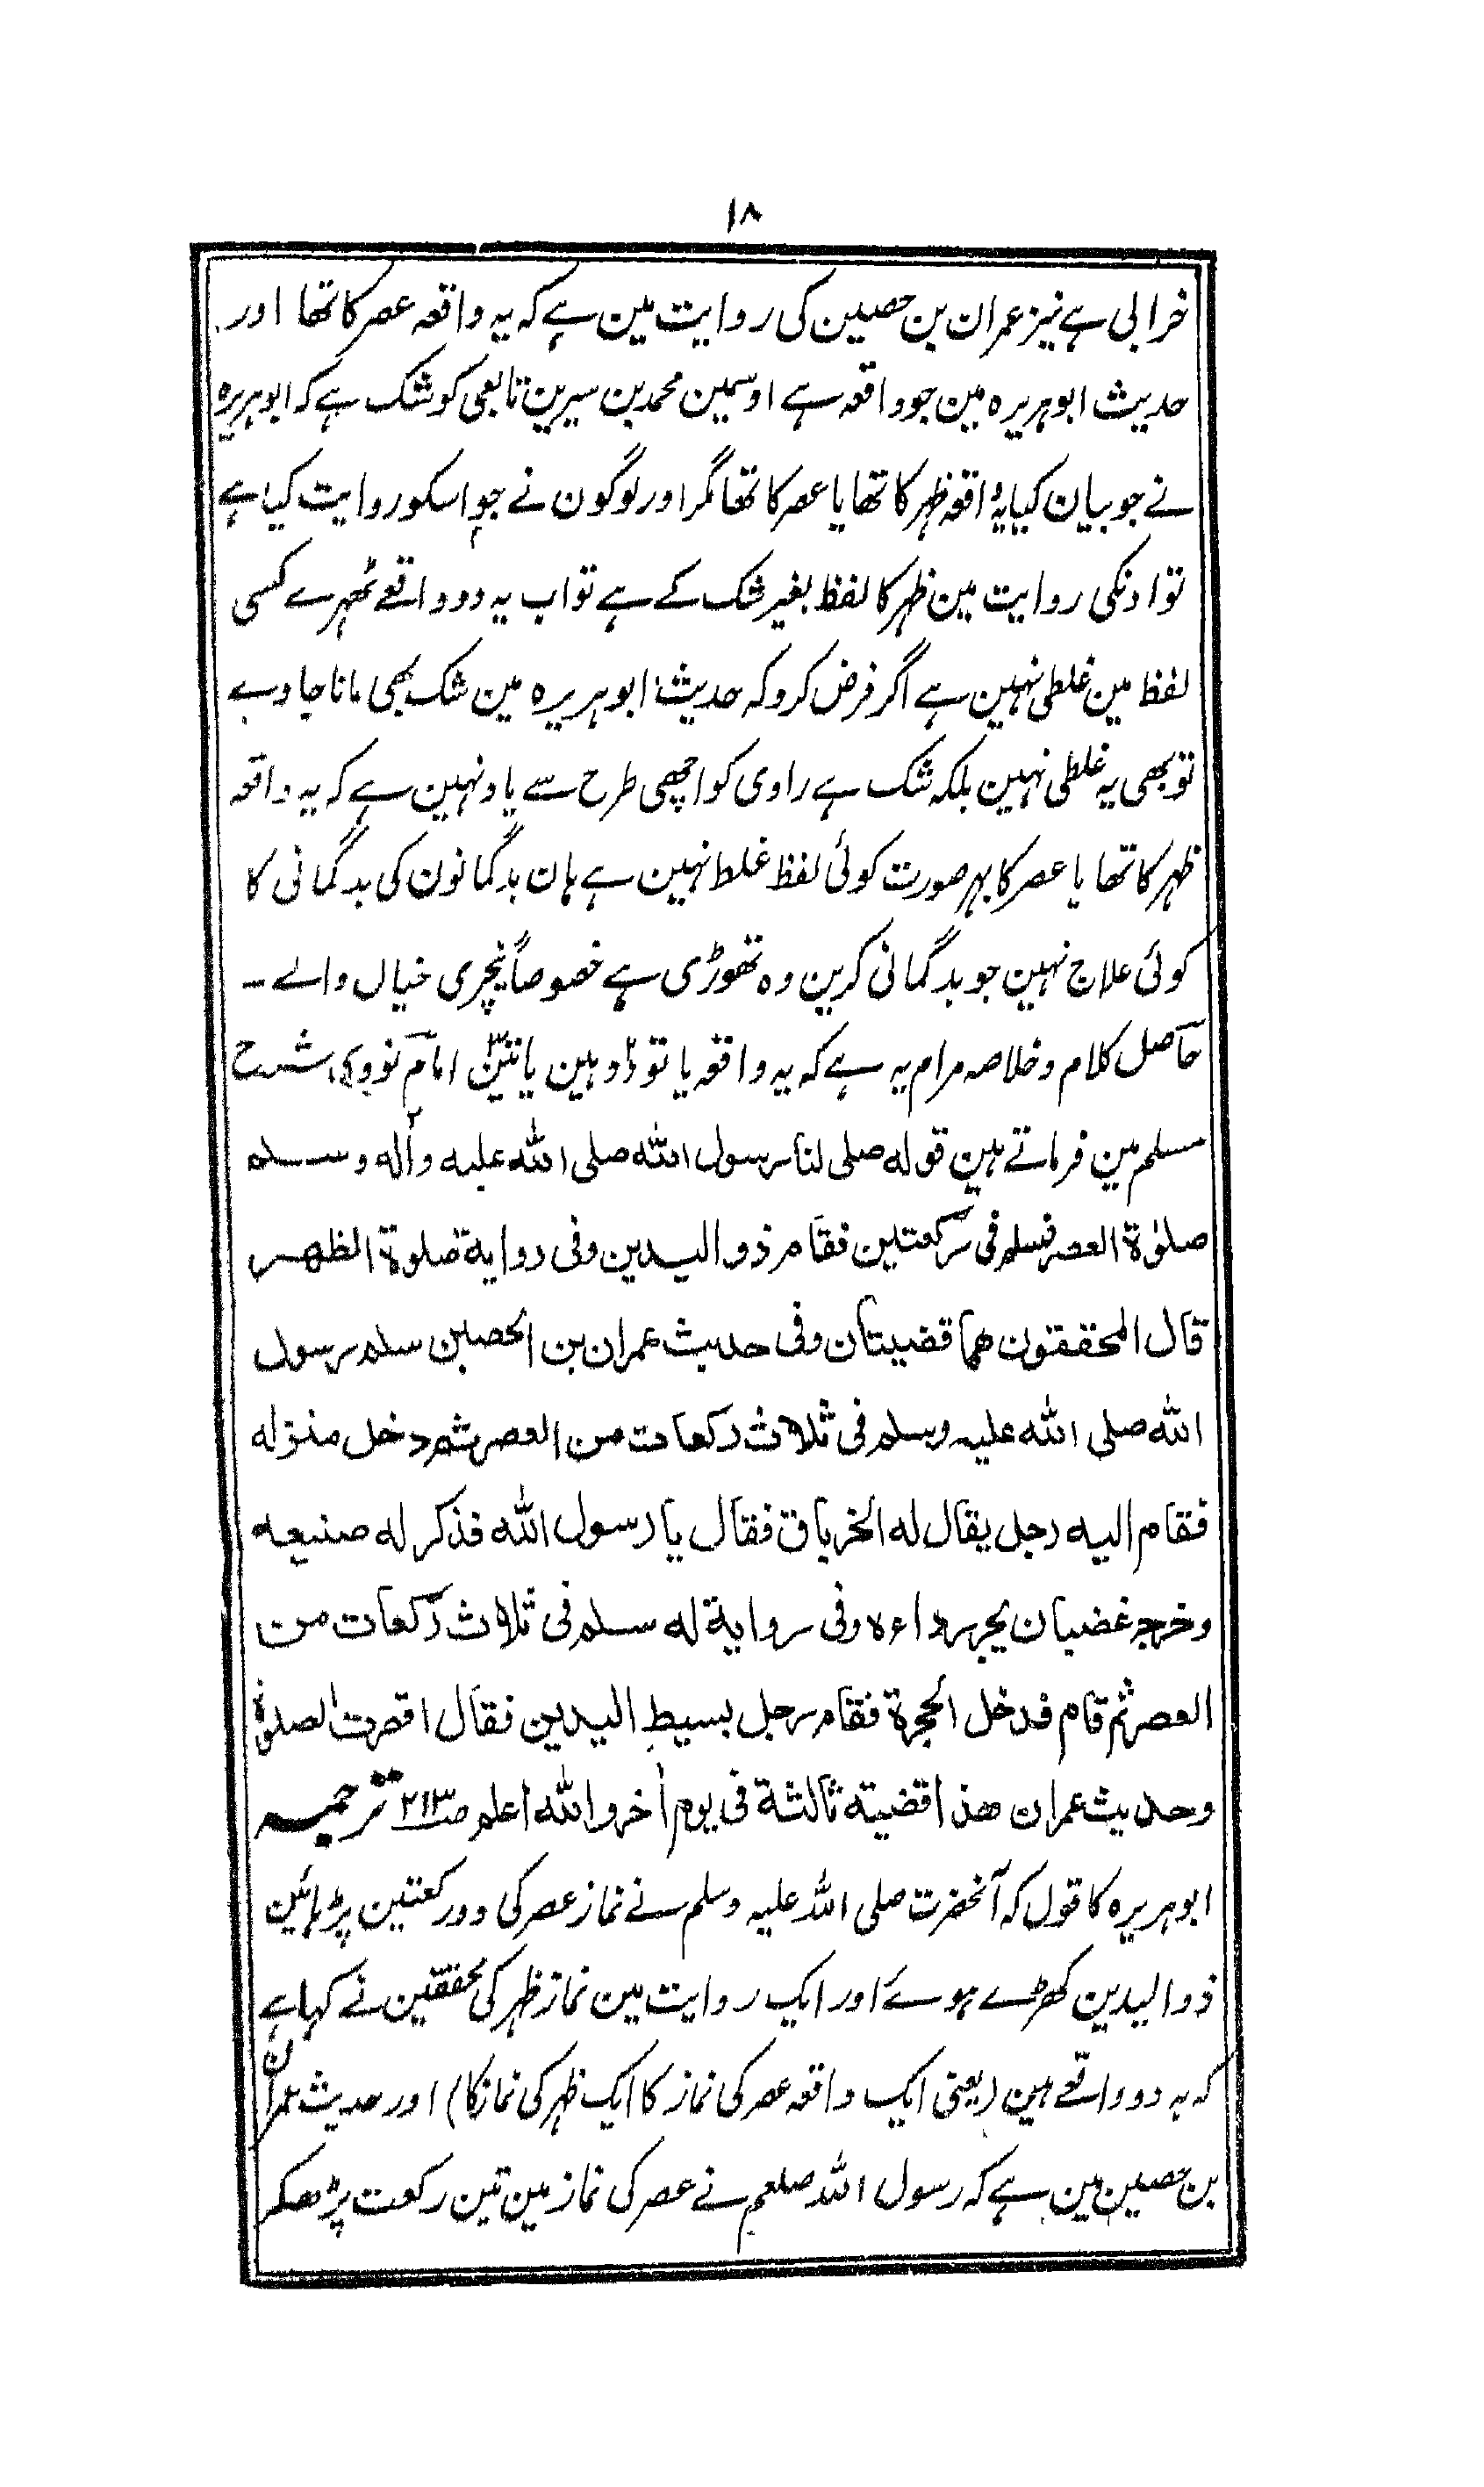 ۱۸
خرابی ہے نیز عمران بن حصین کی روایت مین ہے کہ یہ واقعہ عصر کا تھا اور
حدیث ابوہریرہ مین جو واقعہ ہے اوسمین محمد بن سیرین تابعی کو شک ہے کہ ابوہریرہ
نے جو بیان کیا یہ واقعہ ظہر کا تھا یا عصر کا تھا مگر اور لوگون نے جو اسکو روایت کیا ہے
تو اونکی روایت مین ظہر کا لفظ بغیر شک کے ہے تو اب یہ دو واقعے ٹھہرے کسی
لفظ مین غلطی نہین ہے اگر فرض کرو کہ حدیث ابوہریرہ مین شک بھی مانا جاوے
تو بھی یہ غلطی نہین بلکہ شک ہے راوی کو اچھی طرح سے یاد نہین ہے کہ یہ واقعہ
ظہر کا تھا یا عصر کا بہر صورت کوئی لفظ غلط نہین ہے ہان بدگمانون کی بدگمانی کا
کوئی علاج نہین جو بدگمانی کرین وہ تھوڑی ہے خصوصاً نیچری خیال والے ۔
حاصل کلام و خلاصہ مرام یہ ہے کہ یہ واقعہ یا تو دو ہین یا تین امام نووی شرح
مسلم مین فرماتے ہین قوله صلى لنا رسول الله صلى الله عليه وآله وسلم
صلوة العصر فسلم فى ركعتين فقام ذو اليدين وفى رواية صلوة الظهر
قال المحققون هما قضيتان وفى حديث عمران بن الحصين سلم رسول
الله صلى الله عليه وسلم فى ثلاث ركعات من العصر ثم دخل منزله
فقام اليه رجل يقال له الخرباق فقال يا رسول الله فذكر له صنيعه
وخرج غضبان يجر رداءه وفى رواية له سلم فى ثلاث ركعات من
العصر ثم قام فدخل الحجرة فقام رجل بسيط اليدين فقال اقصرت الصلوة
وحديث عمران هذا قضيته ثالثة فى يوم آخر والله اعلم صـ۲۱۳ ترجمہ
ابوہریرہ کا قول کہ آنحضرت صلی اللہ علیہ وسلم نے نماز عصر کی دو رکعتین پڑہائین
ذوالیدین کھڑے ہوئے اور ایک روایت مین نماز ظہر کی محققین نے کہا ہے
کہ یہ دو واقعے ہین (یعنی ایک واقعہ عصر کی نماز کا ایک ظہر کی نماز کا) اور حدیث عمران
بن حصین مین ہے کہ رسول اللہ صلعم نے عصر کی نماز مین تین رکعت پڑھکر